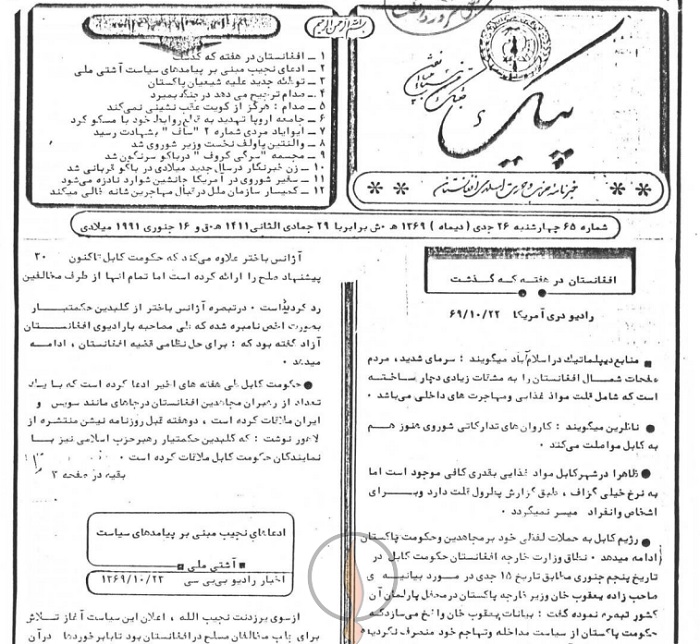 بسم الله الرحمن الرحیم
پیک
خبرنامه حزب وحدت اسلامی افغانستان
۱ ــ افغانستان در هفته که گذشت
۲ ــ ادعای نجیب مبنی بر پیامدهای سیاست آشتی ملی
۳ ــ توطئه جدید علیه شیعیان پاکستان
۴ ــ صدام ترجیح می دهد در جنگ بمیرد
۵ ــ صدام : هرگز از کویت عقب نشینی نمیکند
۶ ــ جامعه اروپا تهدید به قطع روابط خود با مسکو کرد
۷ ــ ابوایاد مردی شماره ۲ "ساف" بشهادت رسید
۸ ــ والنتین پاولف نخست وزیر شوروی شد
۹ ــ مجسمه "سرگی کروف" درباکو سرنگون شد
۱۰ ــ زن خبرنگار درسال جدید میلادی در باکو قربانی شد
۱۱ ــ سفیر شوروی در آمریکا جانشین شوارد نادزه میشود
۱۲ ــ کمیسار سازمان ملل در تبال مهاجرین شانه خالی میکند
شماره ۶۵ چهارشنبه ۲۶ جدی ( دیماه ) ۱۳۶۹ هـ ش برابر با ۲۹ جمادی الثانی ۱۴۱۱ هـ ق و ۱۶ جنوری ۱۹۹۱ میلادی
افغانستان در هفته که گذشت
رادیو دری آمریکا ۶۹/۱۰/۲۲
■ منابع دیپلماتیک در اسلام آباد میگویند : سرمای شدید، مردم
صفحات شمال افغانستان را به مشقات زیادی دچار ساخته
است که شامل قلت مواد غذایی ومهاجرت های داخلی می باشد ۰
● ناظرین میگویند : کاروان های تدارکاتی شوروی هنوز هم
به کابل مواصلت می کند ۰
● ظاهرا در شهر کابل مواد غذایی بقدری کافی موجود است اما
به نرخ خیلی گزاف ، طبق گزارش پطرول قلت دارد وبرای
اشخاص وانفراد میسر نمیگردد ۰
● رژیم کابل به حملات لفظی خود بر مجاهدین وحکومت پاکستان
ادامه میدهد ۰ نطاق وزارت خارجه افغانستان حکومت کابل در
تاریخ پنجم جنوری مطابق تاریخ ۱۵ جدی در مورد بیانیه ی
صاحب زاده یعقوب خان وزیر خارجه پاکستان در محفل پارلمان آن
کشور تبصره نموده گفت : بیانات یعقوب خان واضح می سازد که
حکومت پاکستان از سیاست مداخله وتهاجم خود منصرف نگردیده
آژانس باختر علاوه می کند که حکومت کابل تاکنون ۳۰
پیشنهاد صلح را ارائه کرده است اما تمام انها از طرف مخالفین
رد گردیده است ۰ در تبصره آژانس باختر از گلبدین حکمتیار
بصورت اخص نامبره شده که طی مصاحبه بارادیوی افغانستان
آزاد گفته بود که : برای حل نظامی قضیه افغانستان ، ادامه
میدهد ۰
● حکومت کابل طی هفته های اخیر ادعا کرده است که با یک
تعداد از رهبران مجاهدین افغانستان درجاهای مانند سویس و
ایران ملاقات کرده است ، دوهفته قبل روزنامه نیشن منتشره از
لاهور نوشت : که گلبدین حکمتیار رهبرحزب اسلامی نیز با
نمایندگان حکومت کابل ملاقات کرده است ۰
بقیه در صفحه ۳
ادعاهای نجیب مبنی بر پیامدهای سیاست
آشتی ملی
اخبار رادیو بی بی سی ۱۳۶۹/۱۰/۲۲
ازسوی برزدنت نجیب الله ، اعلان این سیاست آغاز تلاش
برای جلب مخالفان مسلح درافغانستان بود تابابرخوردها درآن